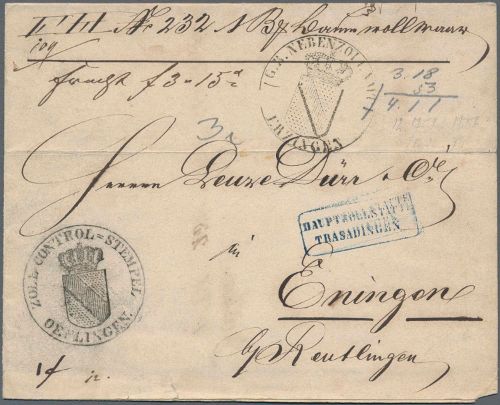 No 232 1 Bz Baumwollwaar
Fracht f 3 - 15 x
G. B. NEBENZOLLAMT
ERZINGEN
3.18
53
4.11
Herren Leuze Dürr & Cie
HAUPTZOLLSTÄTTE
TRASADINGEN.
in
ZOLL-CONTROL=STEMPEL
OEFLINGEN.
Eningen
b/ Reutlingen